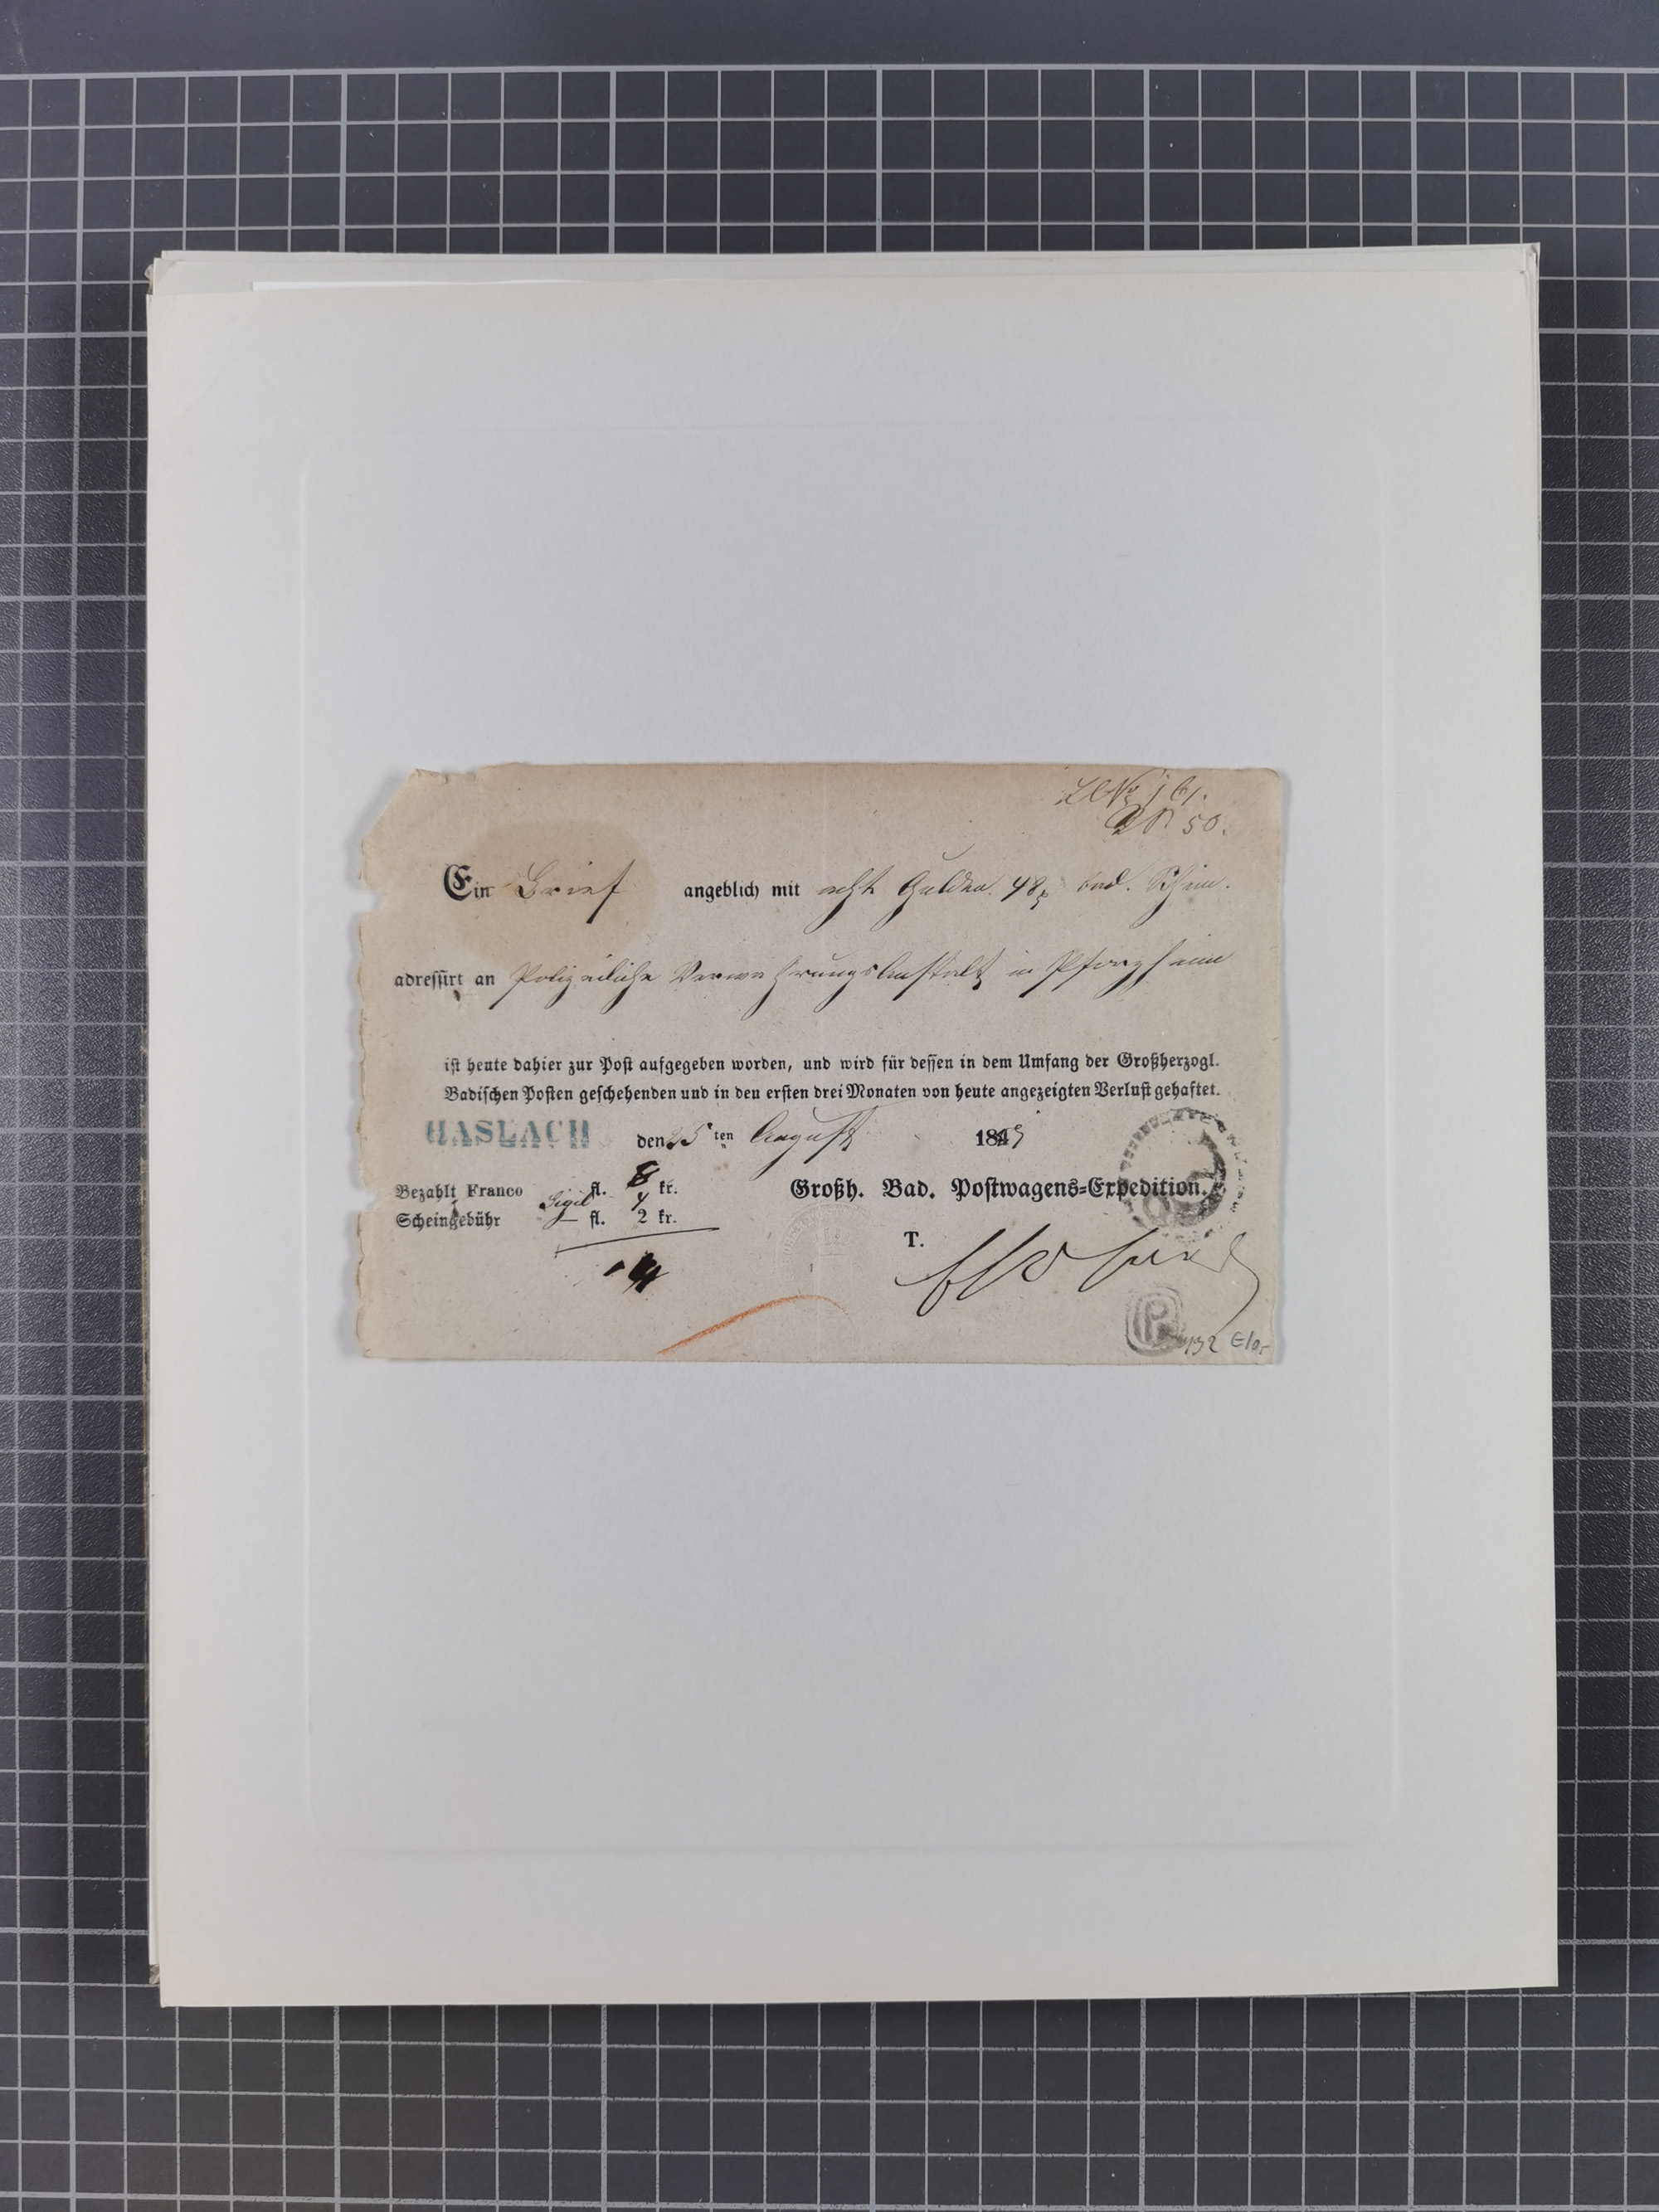 No 161.
50.
Ein Brief angeblich mit acht Gulden 48 bad. Schein.
adressirt an Polizeiliche Verwahrungs Anstalt in Pforzheim
ist heute dahier zur Post aufgegeben worden, und wird für dessen in dem Umfang der Großherzogl.
Badischen Posten geschehenden und in den ersten drei Monaten von heute angezeigten Verlust gehaftet.
HASLACH den 25 ten August 184
Bezahlt Franco fl. 8 kr. Großh. Bad. Postwagens=Expedition.
Sigil 4
Scheingebühr — fl. 2 kr.
T.
14
P